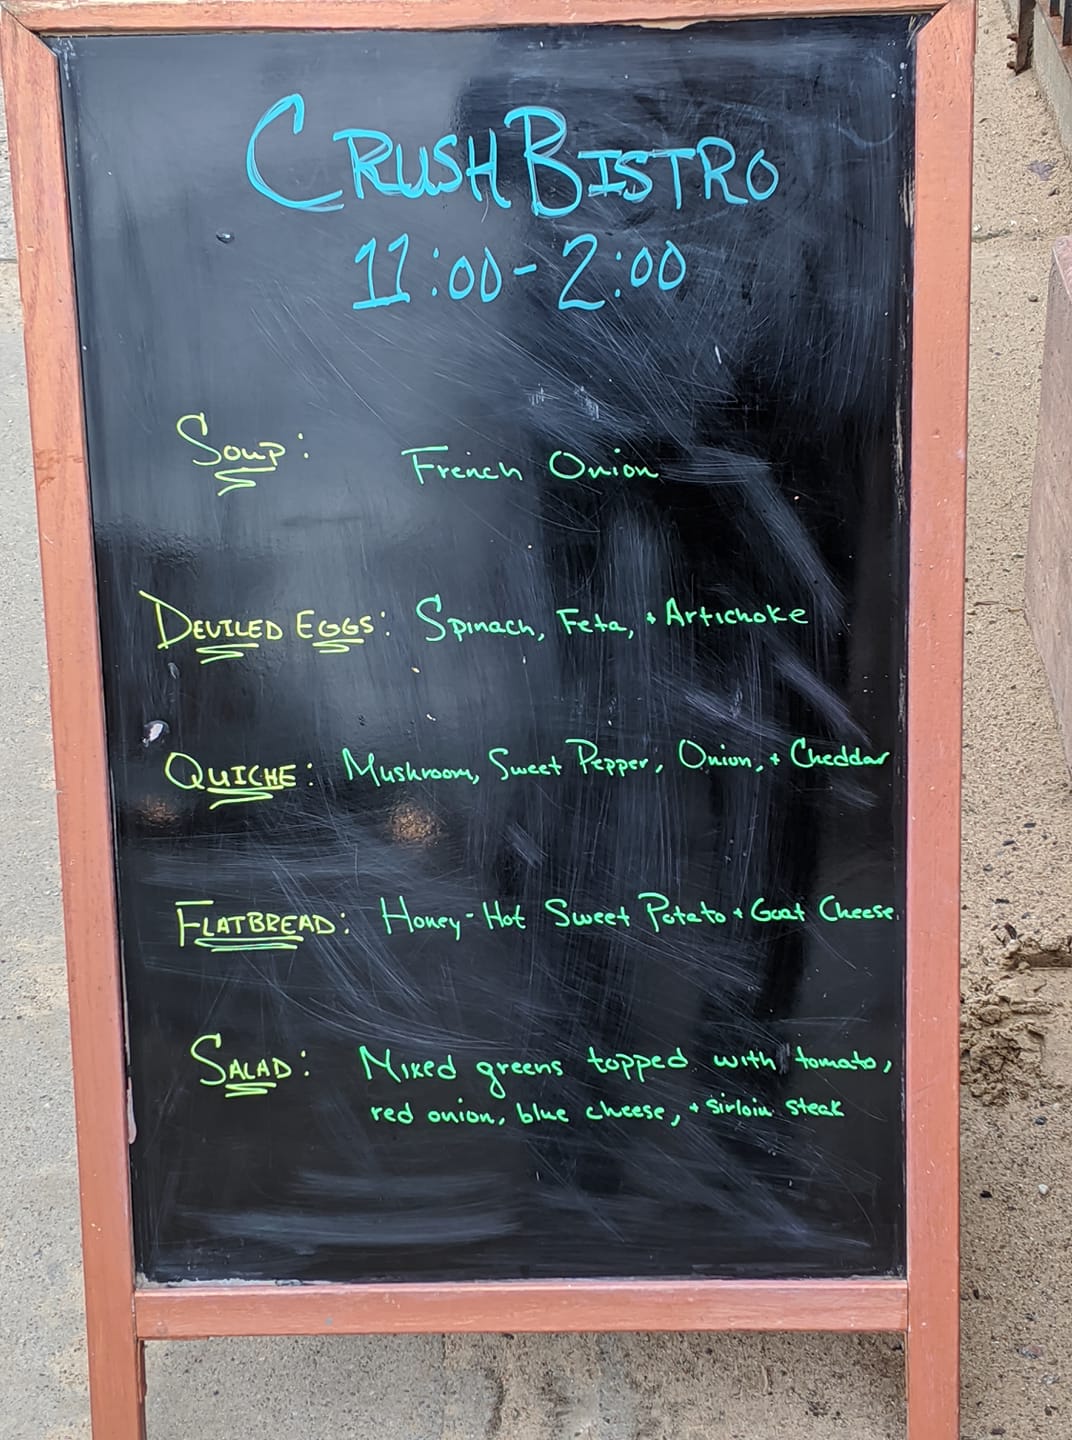 CRUSH BISTRO
11:00-2:00
SOUP: French Onion
DEVILED EGGS: Spinach, Feta, + Artichoke
QUICHE: Mushroom, Sweet Pepper, Onion, + Cheddar
FLATBREAD: Honey-Hot Sweet Potato + Goat Cheese
SALAD: Mixed greens topped with tomato,
red onion, blue cheese, + sirloin steak